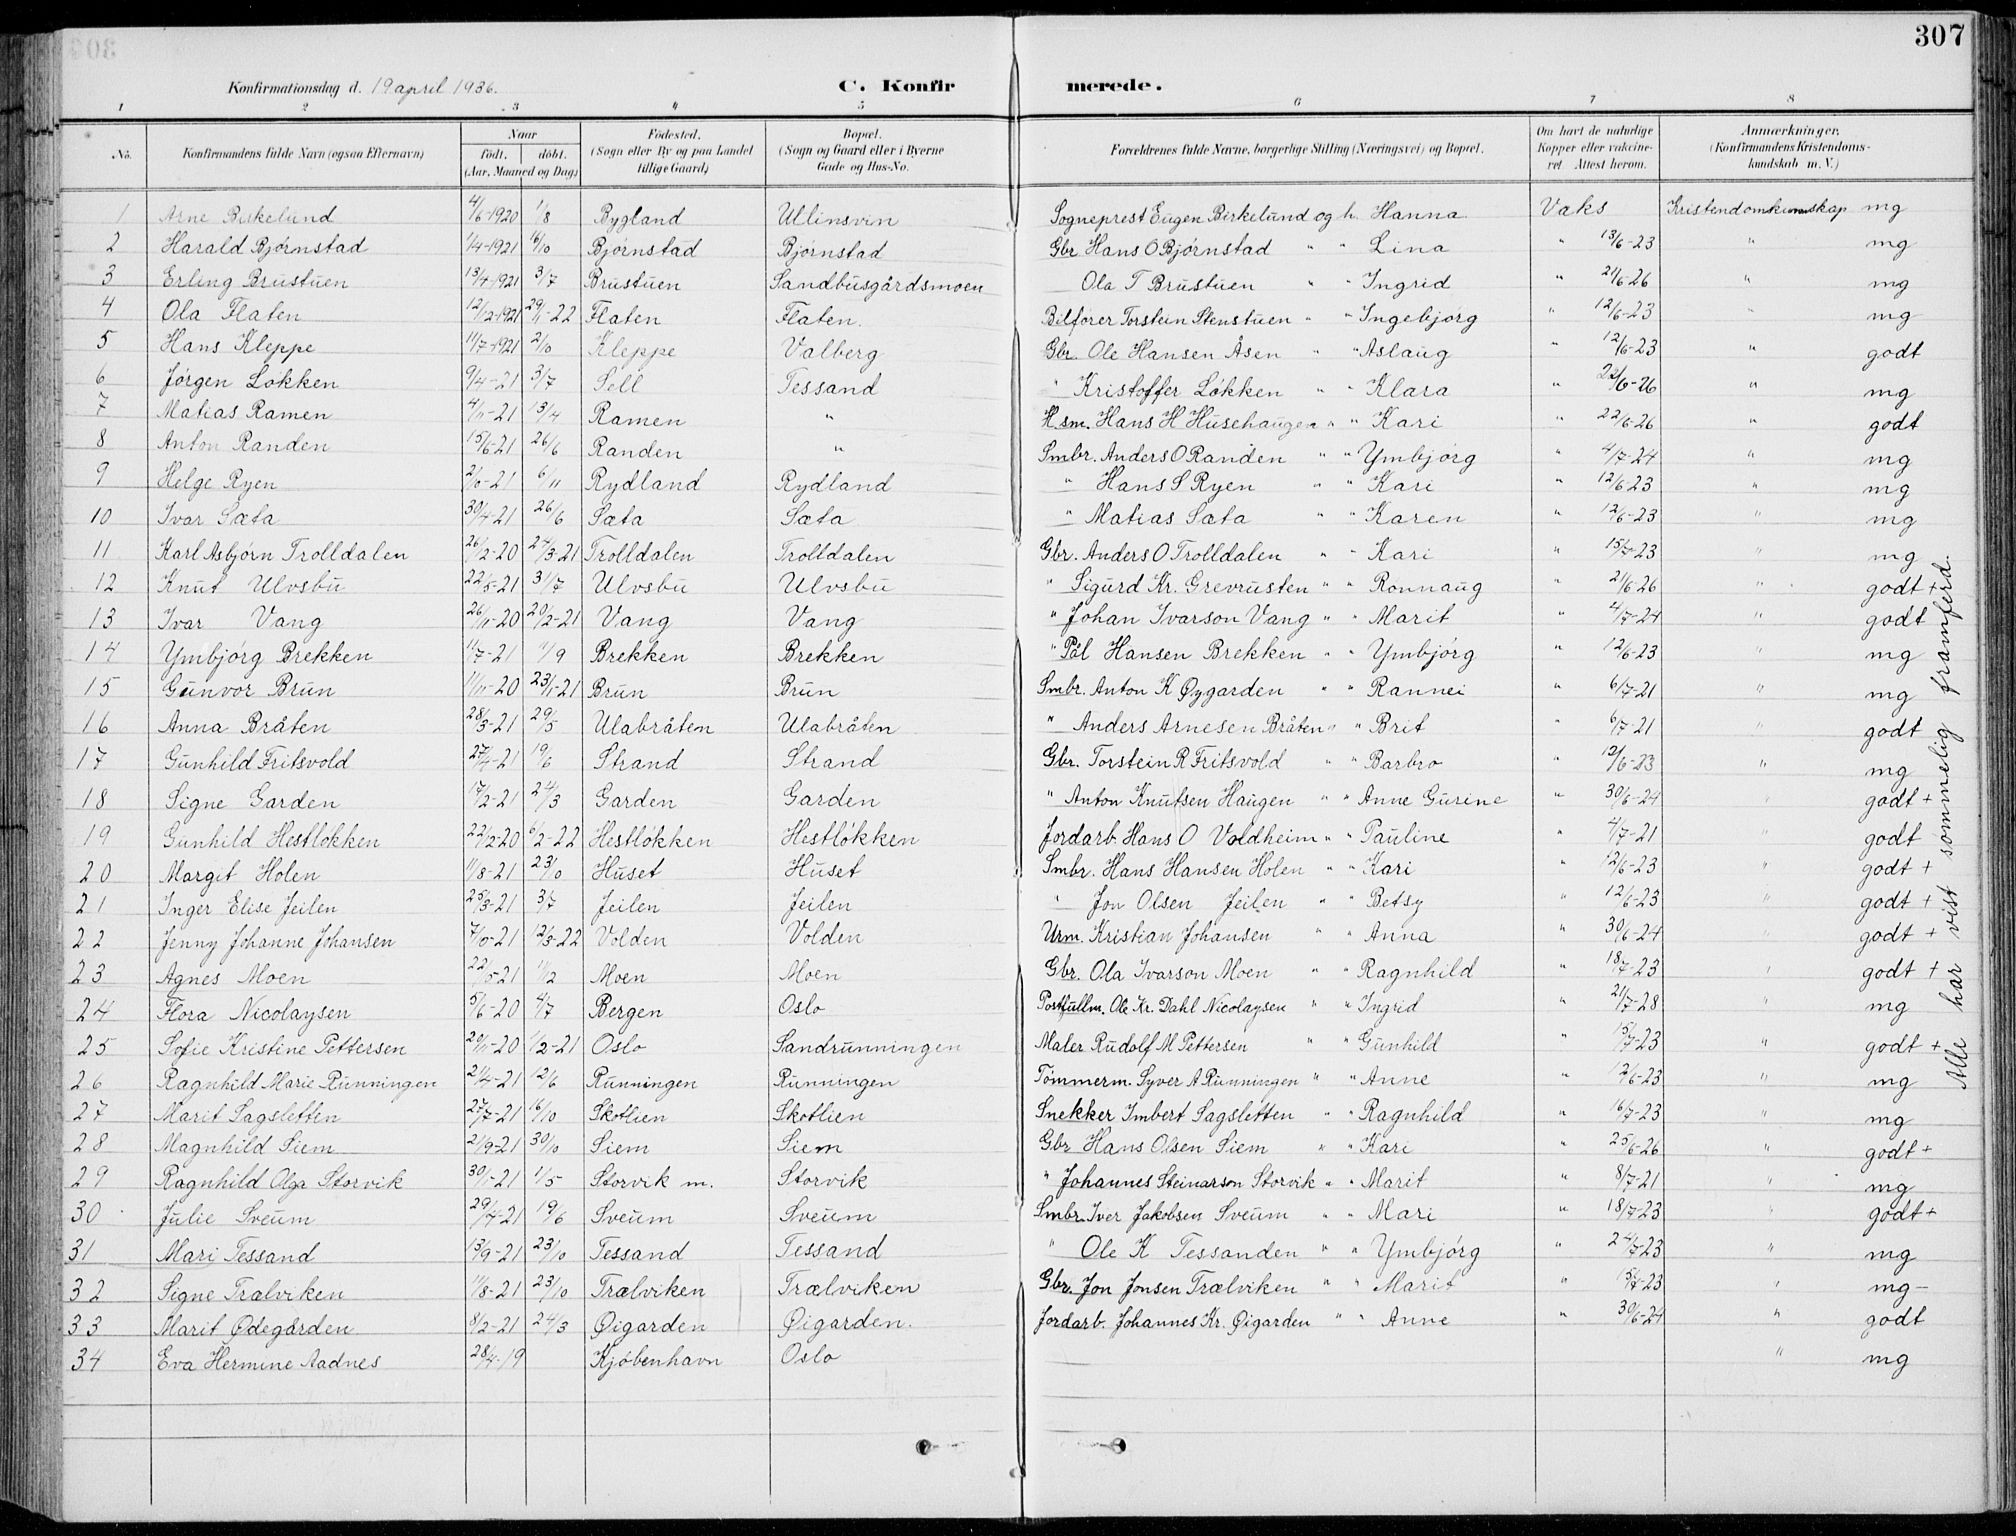 307
Konfirmationsdag d. 19 april 1936. C. Konfir merede.
1 2 3 4 5 6 7 8
No. Konfirmandens fulde Navn (ogsaa Efternavn) Naar født. døbt. (Aar, Maaned og Dag) Fødested. (Sogn eller By og paa Landet tillige Gaard) Bopæl. (Sogn og Gaard eller i Byerne Gade og Hus-No. Forældrenes fulde Navne, borgerlige Stilling (Næringsvei) og Bopæl. Om havt de naturlige Kopper eller vakcineret. Attest herom. Anmærkninger. (Konfirmandens Kristendomskundskab m. V.)
1 Arne Birkelund 4/6-1920 1/8 Bygland Ullinsvin Sogneprest Eugen Birkelund og h. Hanna Vaks Kristendomkunnskap mg
2 Harald Bjørnstad 1/4-1921 16/10 Bjørnstad Bjørnstad Gbr Hans O Bjørnstad " " Lina " 13/6-23 " mg
3 Erling Brustuen 13/4-1921 3/7 Brustuen Sandbusgårdsmoen Ola T Brustuen " " Ingrid " 21/6-26 " mg
4 Ola Flaten 12/12-1921 29/1-22 Flaten Flaten. Bilfører Torstein Stenstuen " " Ingebjørg " 12/6-23 " mg
5 Hans Kleppe 11/7-1921 2/10 Kleppe Valberg Gbr. Ole Hansen Åsen " " Aslaug " 12/6-23 " godt
6 Jørgen Løkken 9/4-21 3/7 Sell Tessand " Kristoffer Løkken " " Klara " 22/6-26 " mg
7 Matias Ramen 4/11-21 13/4 Ramen " H.sm. Hans H Husehaugen " " Kari " 22/6-26 " godt
8 Anton Randen 15/6-21 26/6 Randen " Smbr. Anders O Randen " " Ymbjørg " 4/7-24 " mg
9 Helge Ryen 2/10-21 6/11 Rydland Rydland " Hans S Ryen " " Kari " 12/6-23 " mg
10 Ivar Sæta 30/4-21 26/6 Sæta Sæta " Matias Sæta " " Karen " 12/6-23 " mg
11 Karl Asbjørn Trolldalen 26/12-20 24/3-21 Trolldalen Trolldalen Gbr. Anders O Trolldalen " " Kari " 15/7-23 " mg
12 Knut Ulvsbu 22/5-21 31/7 Ulvsbu Ulvsbu " Sigurd Kr. Grevrusten " " Ronnaug " 21/6-26 " godt +
13 Ivar Vang 26/11-20 20/2-21 Vang Vang " Johan Ivarson Vang " " Marit " 4/7-24 " godt
14 Ymbjørg Brekken 11/7-21 11/9 Brekken Brekken " Pål Hansen Brekken " " Ymbjørg " 12/6-23 " mg
15 Gunvor Brun 11/11-20 23/1-21 Brun Brun Smbr. Anton K Øygarden " " Rannei " 6/7-21 " mg
16 Anna Bråten 28/3-21 29/5 Ulabråten Ulabråten " Anders Arnesen Bråten " " Brit " 6/7-21 " godt
17 Gunhild Fritsvold 27/4-21 19/6 Strand Strand Gbr. Torstein R Fritsvold " " Barbro " 12/6-23 " mg
18 Signe Garden 17/2-21 24/3 Garden Garden " Anton Knutsen Haugen " " Anne Gurine " 30/6-24 " godt +
19 Gunhild Hestløkken 22/12-20 6/2-22 Hestløkken Hestløkken Jordarb. Hans O Voldheim " " Pauline " 4/7-21 " godt
20 Margit Holen 11/8-21 23/10 Huset Huset Smbr. Hans Hansen Holen " " Kari " 12/6-23 " godt +
21 Inger Elise Jeilen 25/3-21 3/7 Jeilen Jeilen " Jon Olsen Jeilen " " Betsy " 12/6-23 " godt +
22 Jenny Johanne Johansen 7/10-21 12/3-22 Volden Volden Urm. Kristian Johansen " " Anna " 30/6-24 " godt +
23 Agnes Moen 22/5-21 11/2 Moen Moen Gbr. Ola Ivarson Moen " " Ragnhild " 18/7-23 " godt +
24 Flora Nicolaysen 5/6-20 4/7 Bergen Oslo Postfullm. Ole Kr. Dahl Nicolaysen " " Ingrid " 21/7-28 " mg
25 Sofie Kristine Pettersen 20/11-20 1/2-21 Oslo Sandrunningen Maler Rudolf M Pettersen " " Gunhild " 15/7-23 " godt +
26 Ragnhild Marie Runningen 21/4-21 12/6 Runningen Runningen Tømmerm. Syver A Runningen " " Anne " 12/6-23 " mg
27 Marit Sagsletten 27/7-21 16/10 Skotlien Skotlien Snekker Imbert Sagsletten " " Ragnhild " 16/7-23 " mg
28 Magnhild Siem 21/9-21 30/10 Siem Siem Gbr Hans Olsen Siem " " Kari " 25/6-26 " godt +
29 Ragnhild Olga Storvik 30/1-21 1/5 Storvik m. Storvik " Johannes Steinarson Storvik " " Marit " 8/7-21 " mg
30 Julie Sveum 29/4-21 19/6 Sveum Sveum Smbr. Iver Jakobsen Sveum " " Mari " 18/7-23 " godt +
31 Mari Tessand 13/9-21 23/10 Tessand Tessand " Ole K Tessanden " " Ymbjørg " 24/7-23 " mg
32 Signe Trælviken 11/8-21 23/10 Trælviken Trælviken Gbr. Jon Jonsen Trælviken " " Marit " 15/7-23 " mg-
33 Marit Ødegården 8/2-21 24/3 Øigarden Øigarden. Jordarb. Johannes Kr. Øigarden " " Anne " 30/6-24 " godt
34 Eva Hermine Aadnes 28/4-19 Kjøbenhavn Oslo " mg
Alle har vist sommelig framferd.